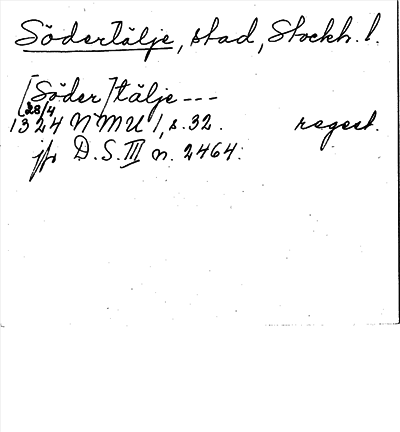 Södertälje, stad, Stockh. l.
[Söder]tälje ---
28/4
1324 NMU 1, s. 32. regest.
jfr D.S. III n. 2464.